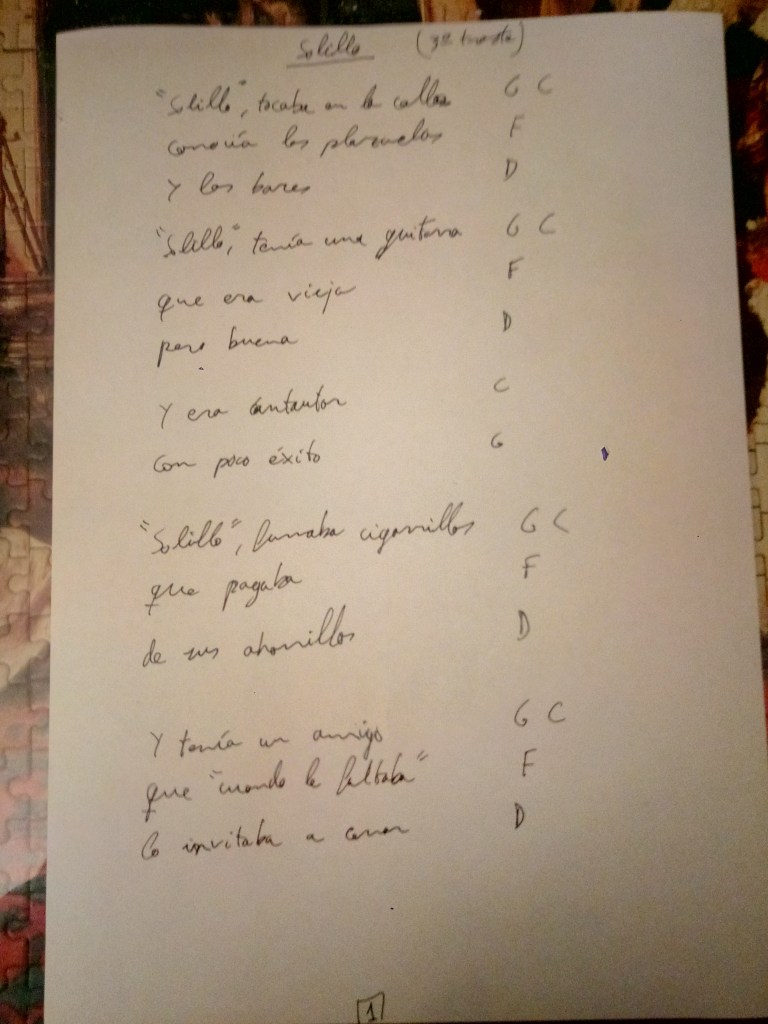 Solillo (3er traste)
"Solillo", tocaba en la calles G C
conocía las plazuelas F
Y los bares D
"Solillo", tenía una guitarra G C
que era vieja F
pero buena D
Y era cantautor C
con poco éxito G
"Solillo", fumaba cigarrillos G C
que pagaba F
de sus ahorrillos D
Y tenía un amigo G C
que "cuando le faltaba" F
lo invitaba a cenar D
1